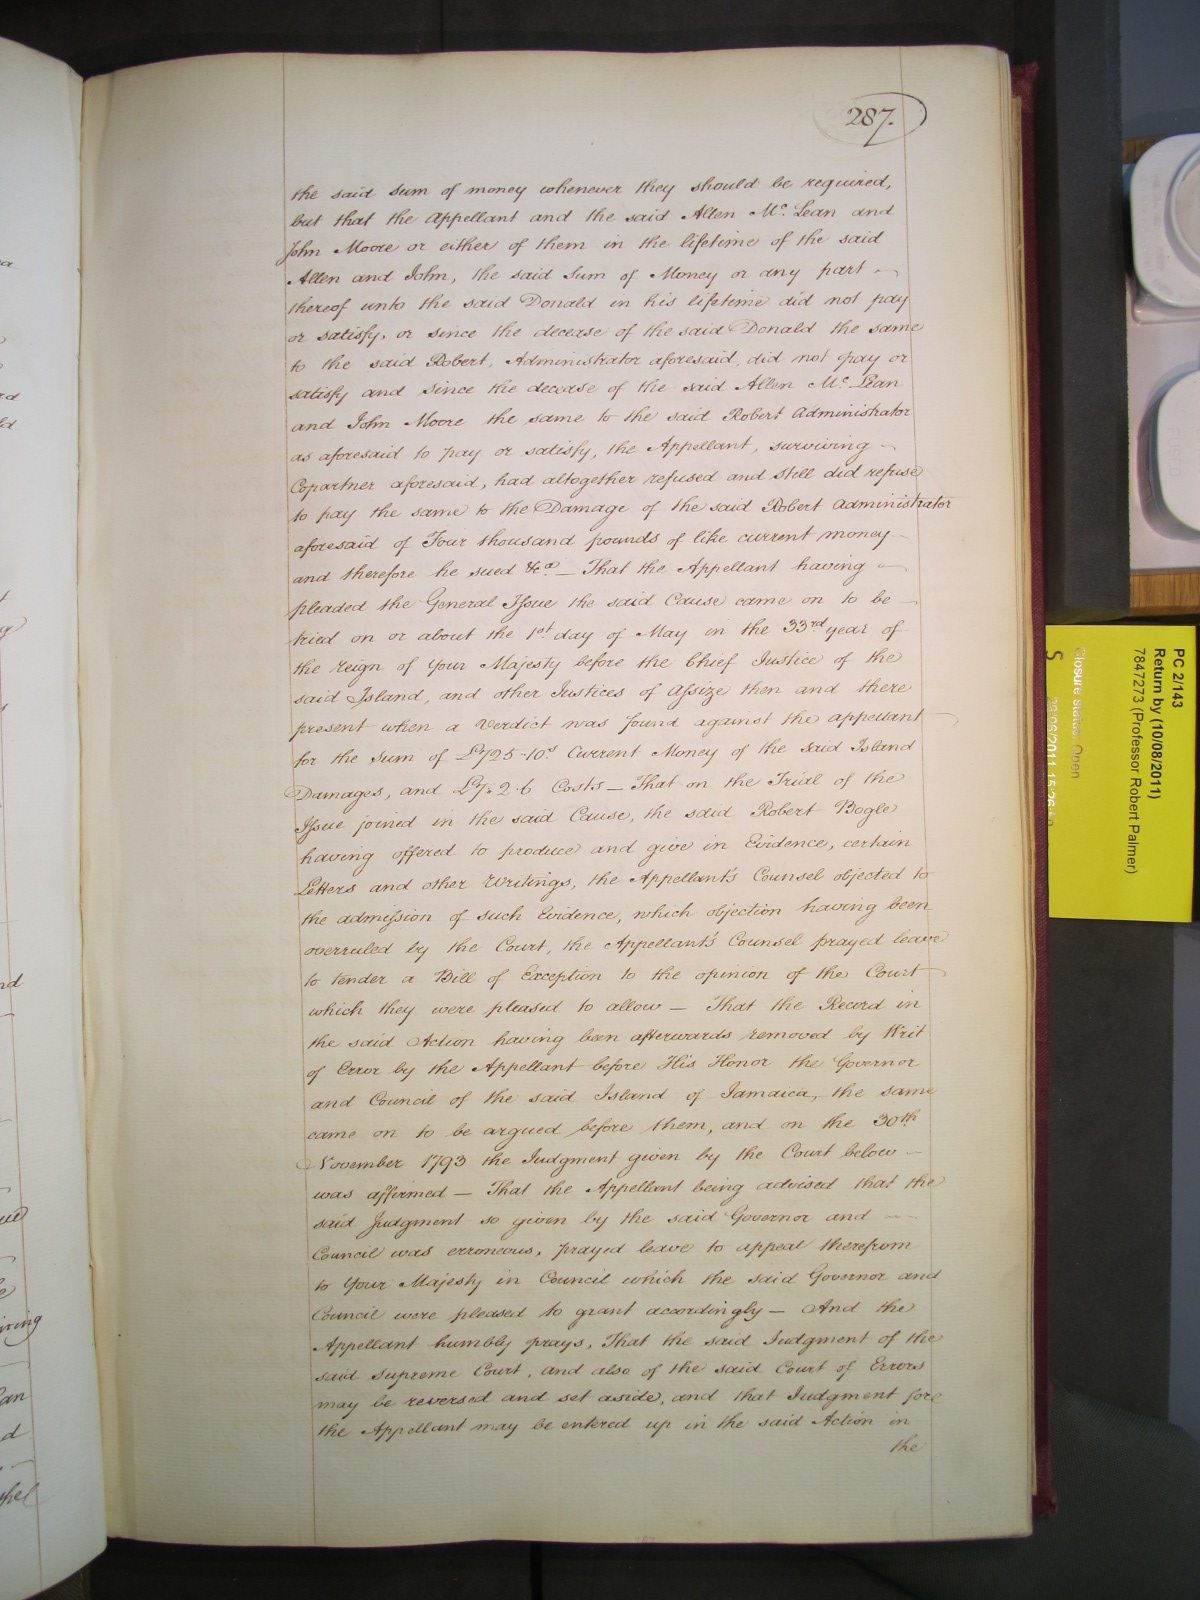 287.
the said sum of money whenever they should be required,
but that the Appellant and the said Allen Mc. Lean and
John Moore or either of them in the lifetime of the said
Allen and John, the said Sum of Money or any part
thereof unto the said Donald in his lifetime did not pay
or satisfy, or since the decease of the said Donald the same
to the said Robert, Administrator aforesaid, did not pay or
satisfy and since the decease of the said Allen Mc. Lean
and John Moore the same to the said Robert Administrator
as aforesaid to pay or satisfy, the Appellant, surviving
Copartner aforesaid, had altogether refused and still did refuse
to pay the same to the Damage of the said Robert Administrator
aforesaid of Four thousand pounds of like current money
and therefore he sued &ca. — That the Appellant having
pleaded the General Issue the said Cause came on to be
tried on or about the 1st day of May in the 33rd year of
the reign of Your Majesty before the Chief Justice of the
said Island, and other Justices of Assize then and there
present when a Verdict was found against the appellant
for the Sum of Current Money of the said Island
Damages, and Costs — That on the Trial of the
Issue joined in the said Cause, the said Robert Bogle
having offered to produce and give in Evidence, certain
Letters and other Writings, the Appellant's Counsel objected to
the admission of such Evidence, which objection having been
overruled by the Court, the Appellant's Counsel prayed leave
to tender a Bill of Exception to the opinion of the Court
which they were pleased to allow — That the Record in
the said Action having been afterwards removed by Writ
of Error by the Appellant before His Honor the Governor
and Council of the said Island of Jamaica, the same
came on to be argued before them, and on the 30th
November 1793 the Judgment given by the Court below
was affirmed — That the Appellant being advised that the
said Judgment so given by the said Governor and
Council was erroneous, prayed leave to appeal therefrom
to Your Majesty in Council which the said Governor and
Council were pleased to grant accordingly — And the
Appellant humbly prays, That the said Judgment of the
said Supreme Court, and also of the said Court of Errors
may be reversed and set aside, and that Judgment for
the Appellant may be entered up in the said Action in
the
PC 2/143
Return by (10/08/2011)
7847273 (Professor Robert Palmer)
Closure status: Open
S